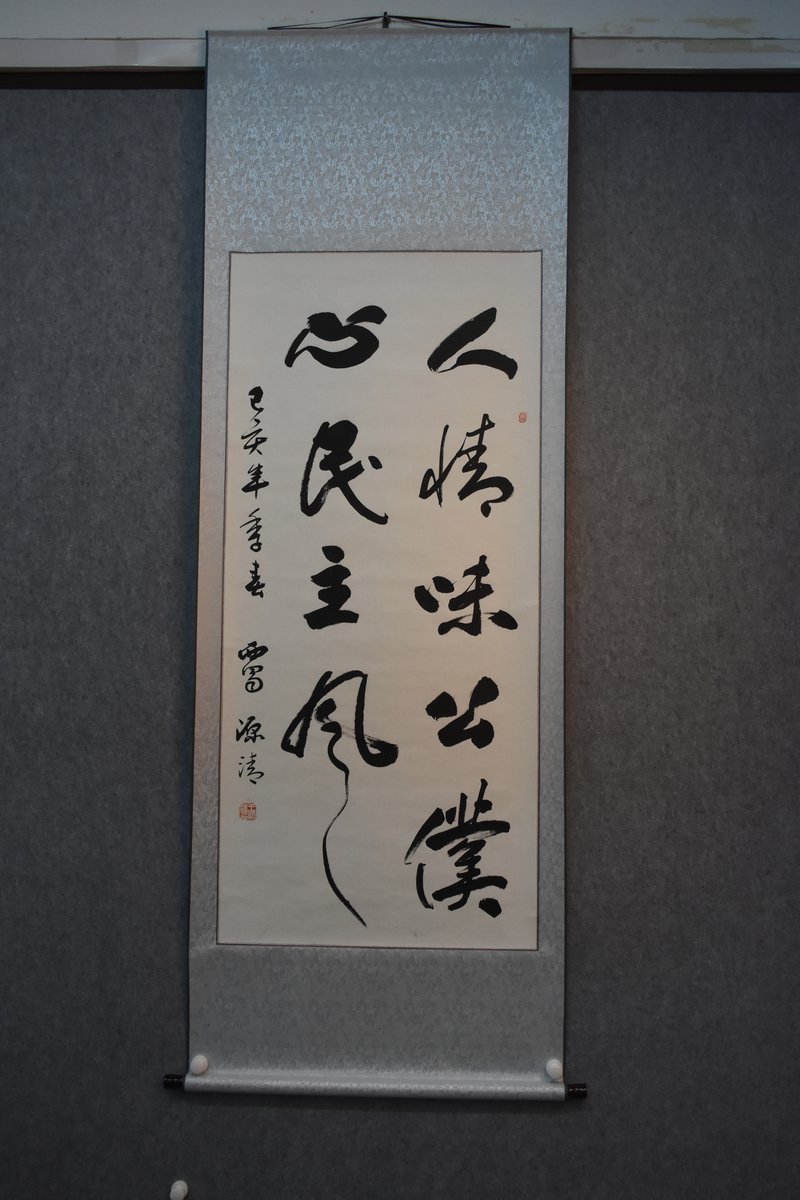 人情味公僕
心民主風
己亥年季春 賈源清